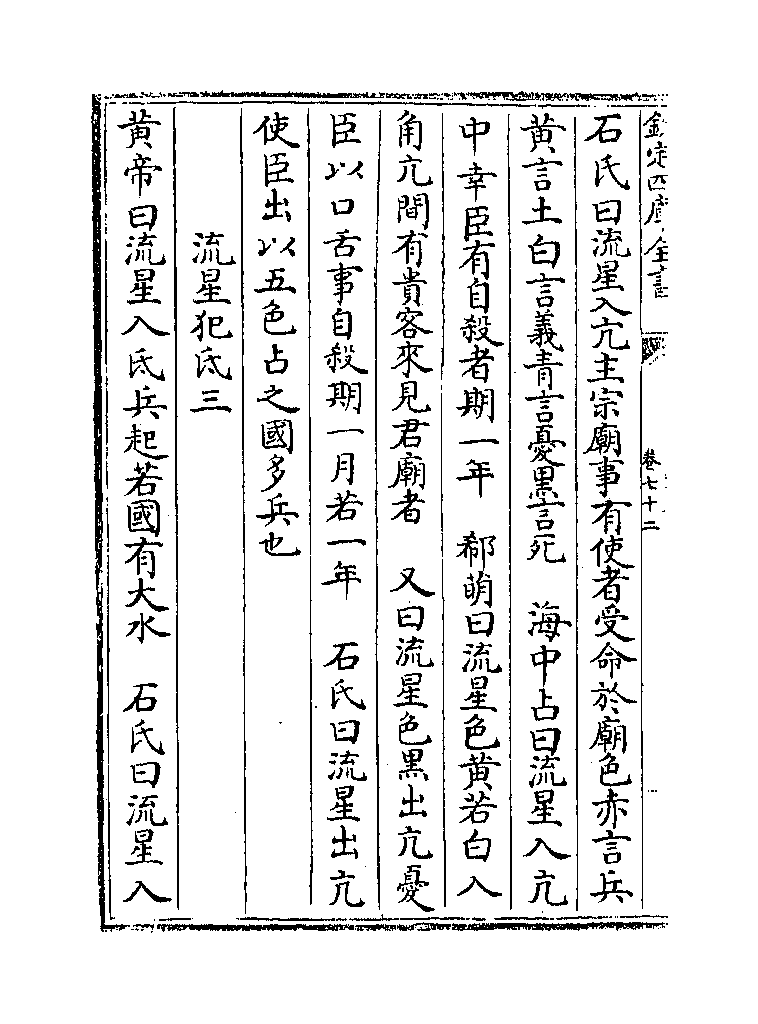 欽定四庫全書
卷七十二
石氏曰流星入亢主宗廟事有使者受命於廟色赤言兵
黄言土白言義青言憂黒言死　海中占曰流星入亢
中幸臣有自殺者期一年　郗萌曰流星色黄若白入
角亢間有貴客來見君廟者　又曰流星色黒出亢憂
臣以口舌事自殺期一月若一年　石氏曰流星出亢
使臣出以五色占之國多兵也
流星犯氐三
黄帝曰流星入氐兵起若國有大水　石氏曰流星入